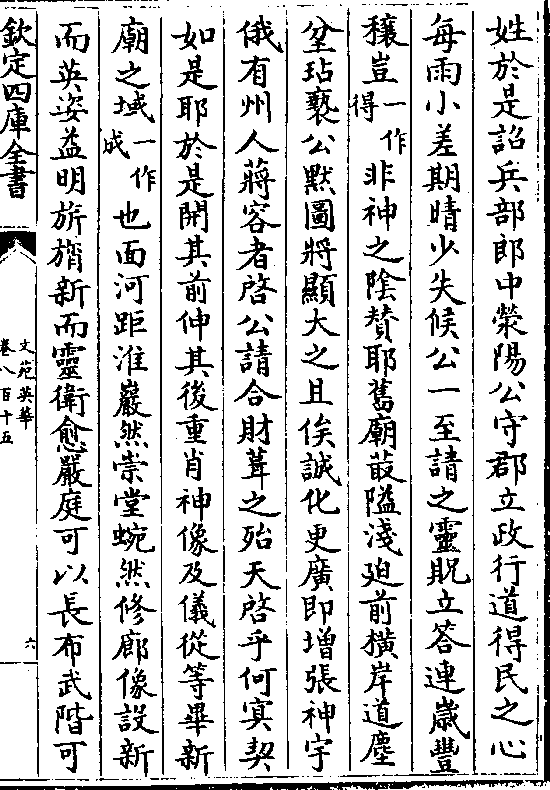 姓於是詔兵部郎中滎陽公守郡立政行道得民之心
每雨小差期晴少失候公一至請之靈貺立答連歲豐
穰豈一作得非神之陰賛耶舊廟蕞隘淺廹前横岸道塵
坌玷褻公黙圖將顯大之且俟誠化更廣即增張神宇
俄有州人蔣容者啓公請合財葺之殆天啓乎何㝠契
如是耶於是開其前伸其後重肖神像及儀從等畢新
廟之域一作成也面河距淮巖然崇堂蜿然修廊像設新
而英姿益明旂旓新而靈衛愈嚴庭可以長布武階可
欽定四庫全書
文苑英華
卷八百十五
六